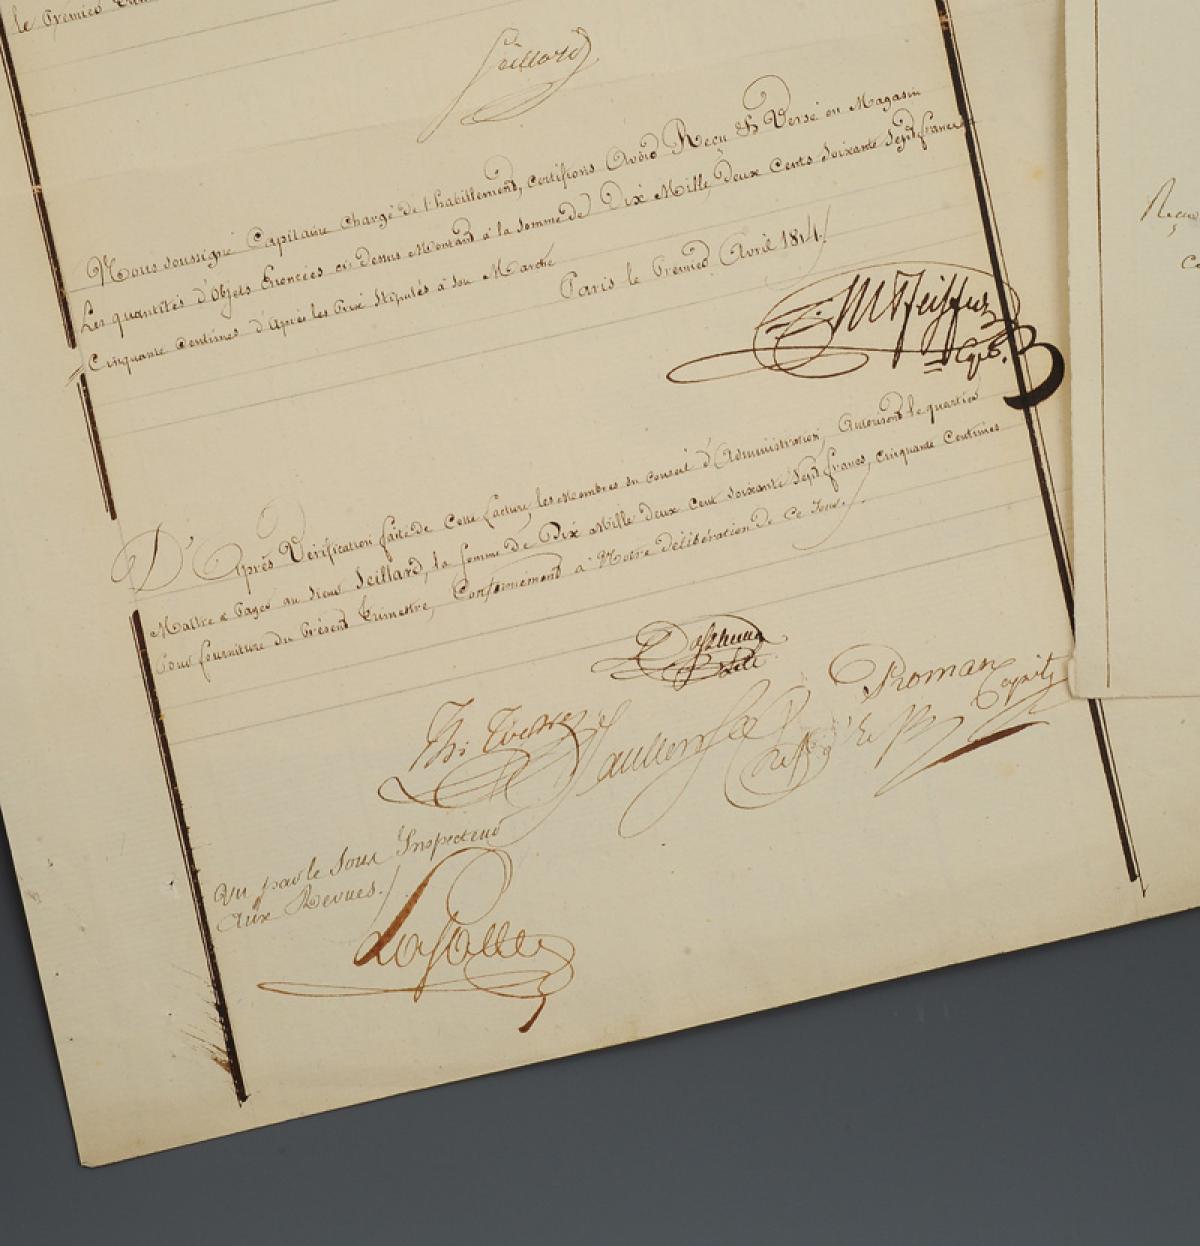 le Premier
Seillard
Nous soussigné Capitaine Chargé de l'habillement, certifions Avoir Reçu Et Versé en Magasin
Les quantités d'Objets Enoncées ci dessus Montant à la Somme de Dix Mille deux Cents Soixante Sept francs
Cinquante Centimes d'Après les Prix Stipulés à son Marché
Paris le Premier Avril 1814
Pfeiffer
D'Après Vérification faite de Cette facture, les Membres du Conseil d'Administration, Autorisent le quartier
Maître à Payer au Sieur Seillard, la Somme de Dix Mille deux Cent Soixante Sept francs, Cinquante Centimes
Pour fourniture du Présent Trimestre, Conformément à Notre délibération de Ce Jour.
Roman
Vu par le Sous Inspecteur
Aux Revues.
LaSalle